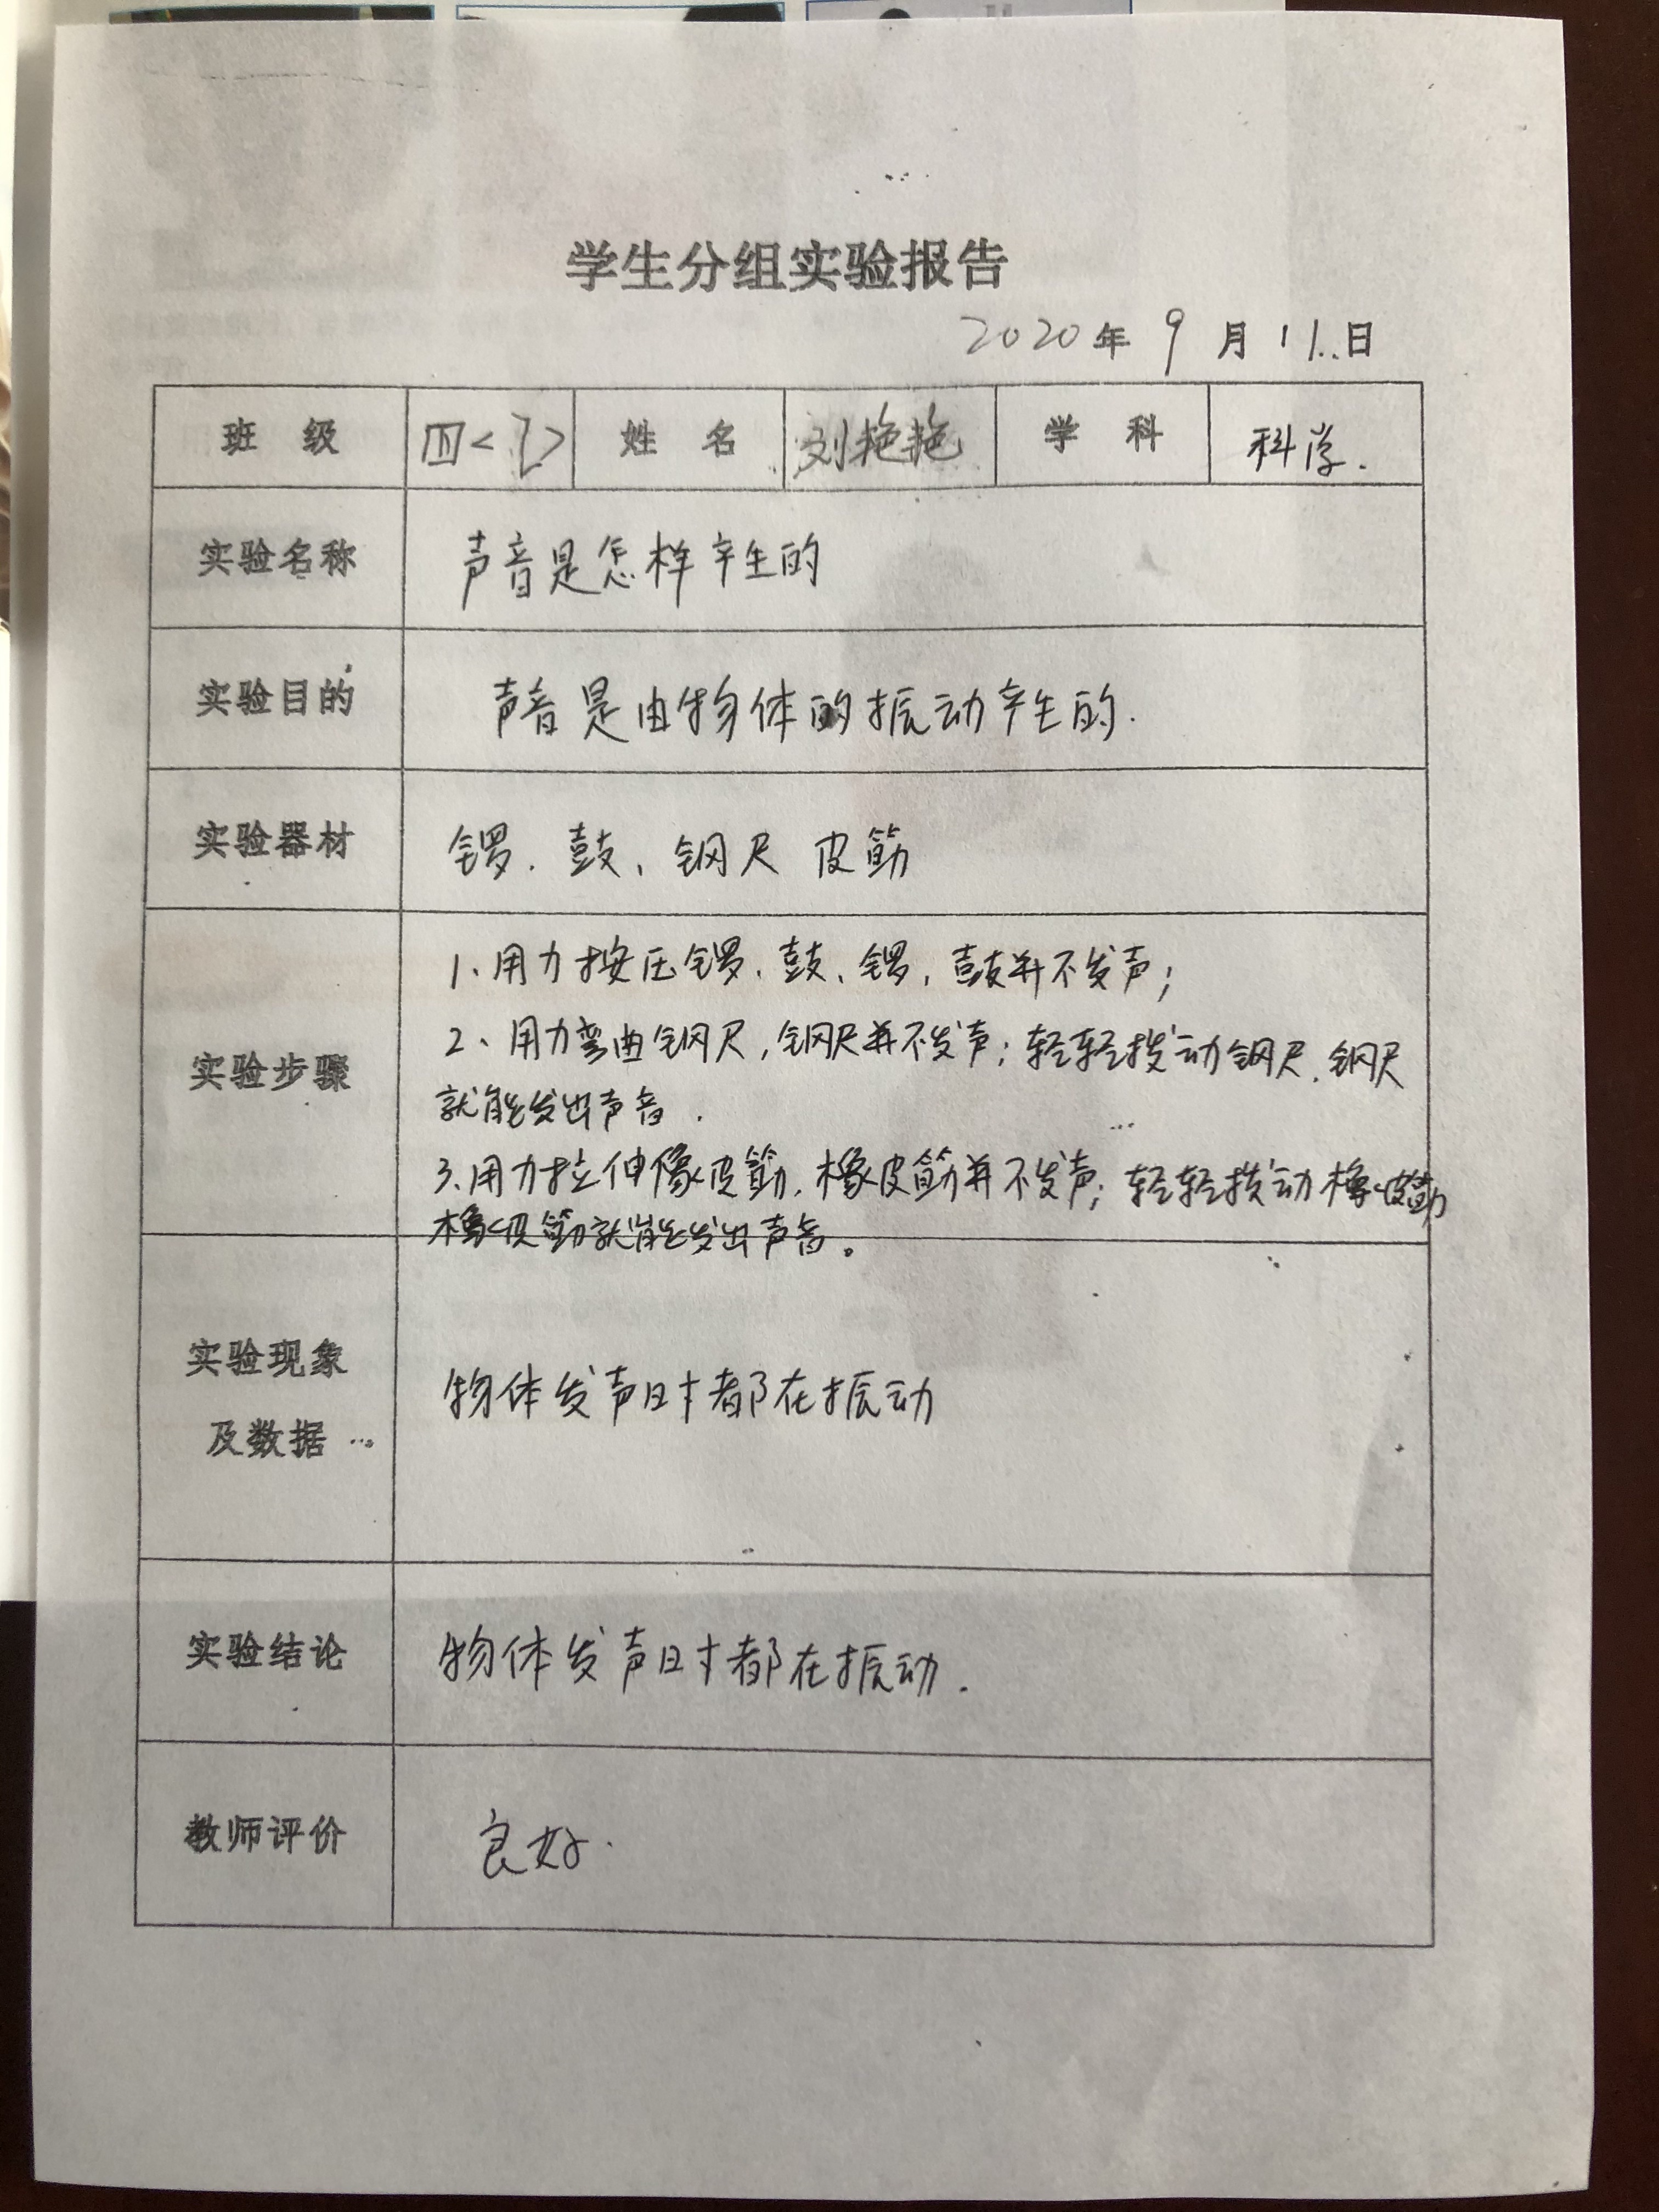 学生分组实验报告
2020年9月11日
班 级 四<1> 姓 名 刘艳艳 学 科 科学.
实验名称 声音是怎样产生的
实验目的 声音是由物体的振动产生的.
实验器材 锣.鼓、钢尺 皮筋
实验步骤
1、用力按压锣、鼓、锣,鼓并不发声;
2、用力弯曲钢尺,钢尺并不发声;轻轻拨动钢尺.钢尺
就能发出声音.
3.用力拉伸橡皮筋,橡皮筋并不发声;轻轻拨动橡皮筋
橡皮筋就能发出声音。
实验现象
及数据
物体发声时都在振动
实验结论 物体发声时都在振动.
教师评价 良好.